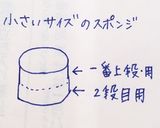 小さいサイズのスポンジ
←一番上段・用
←2段目用